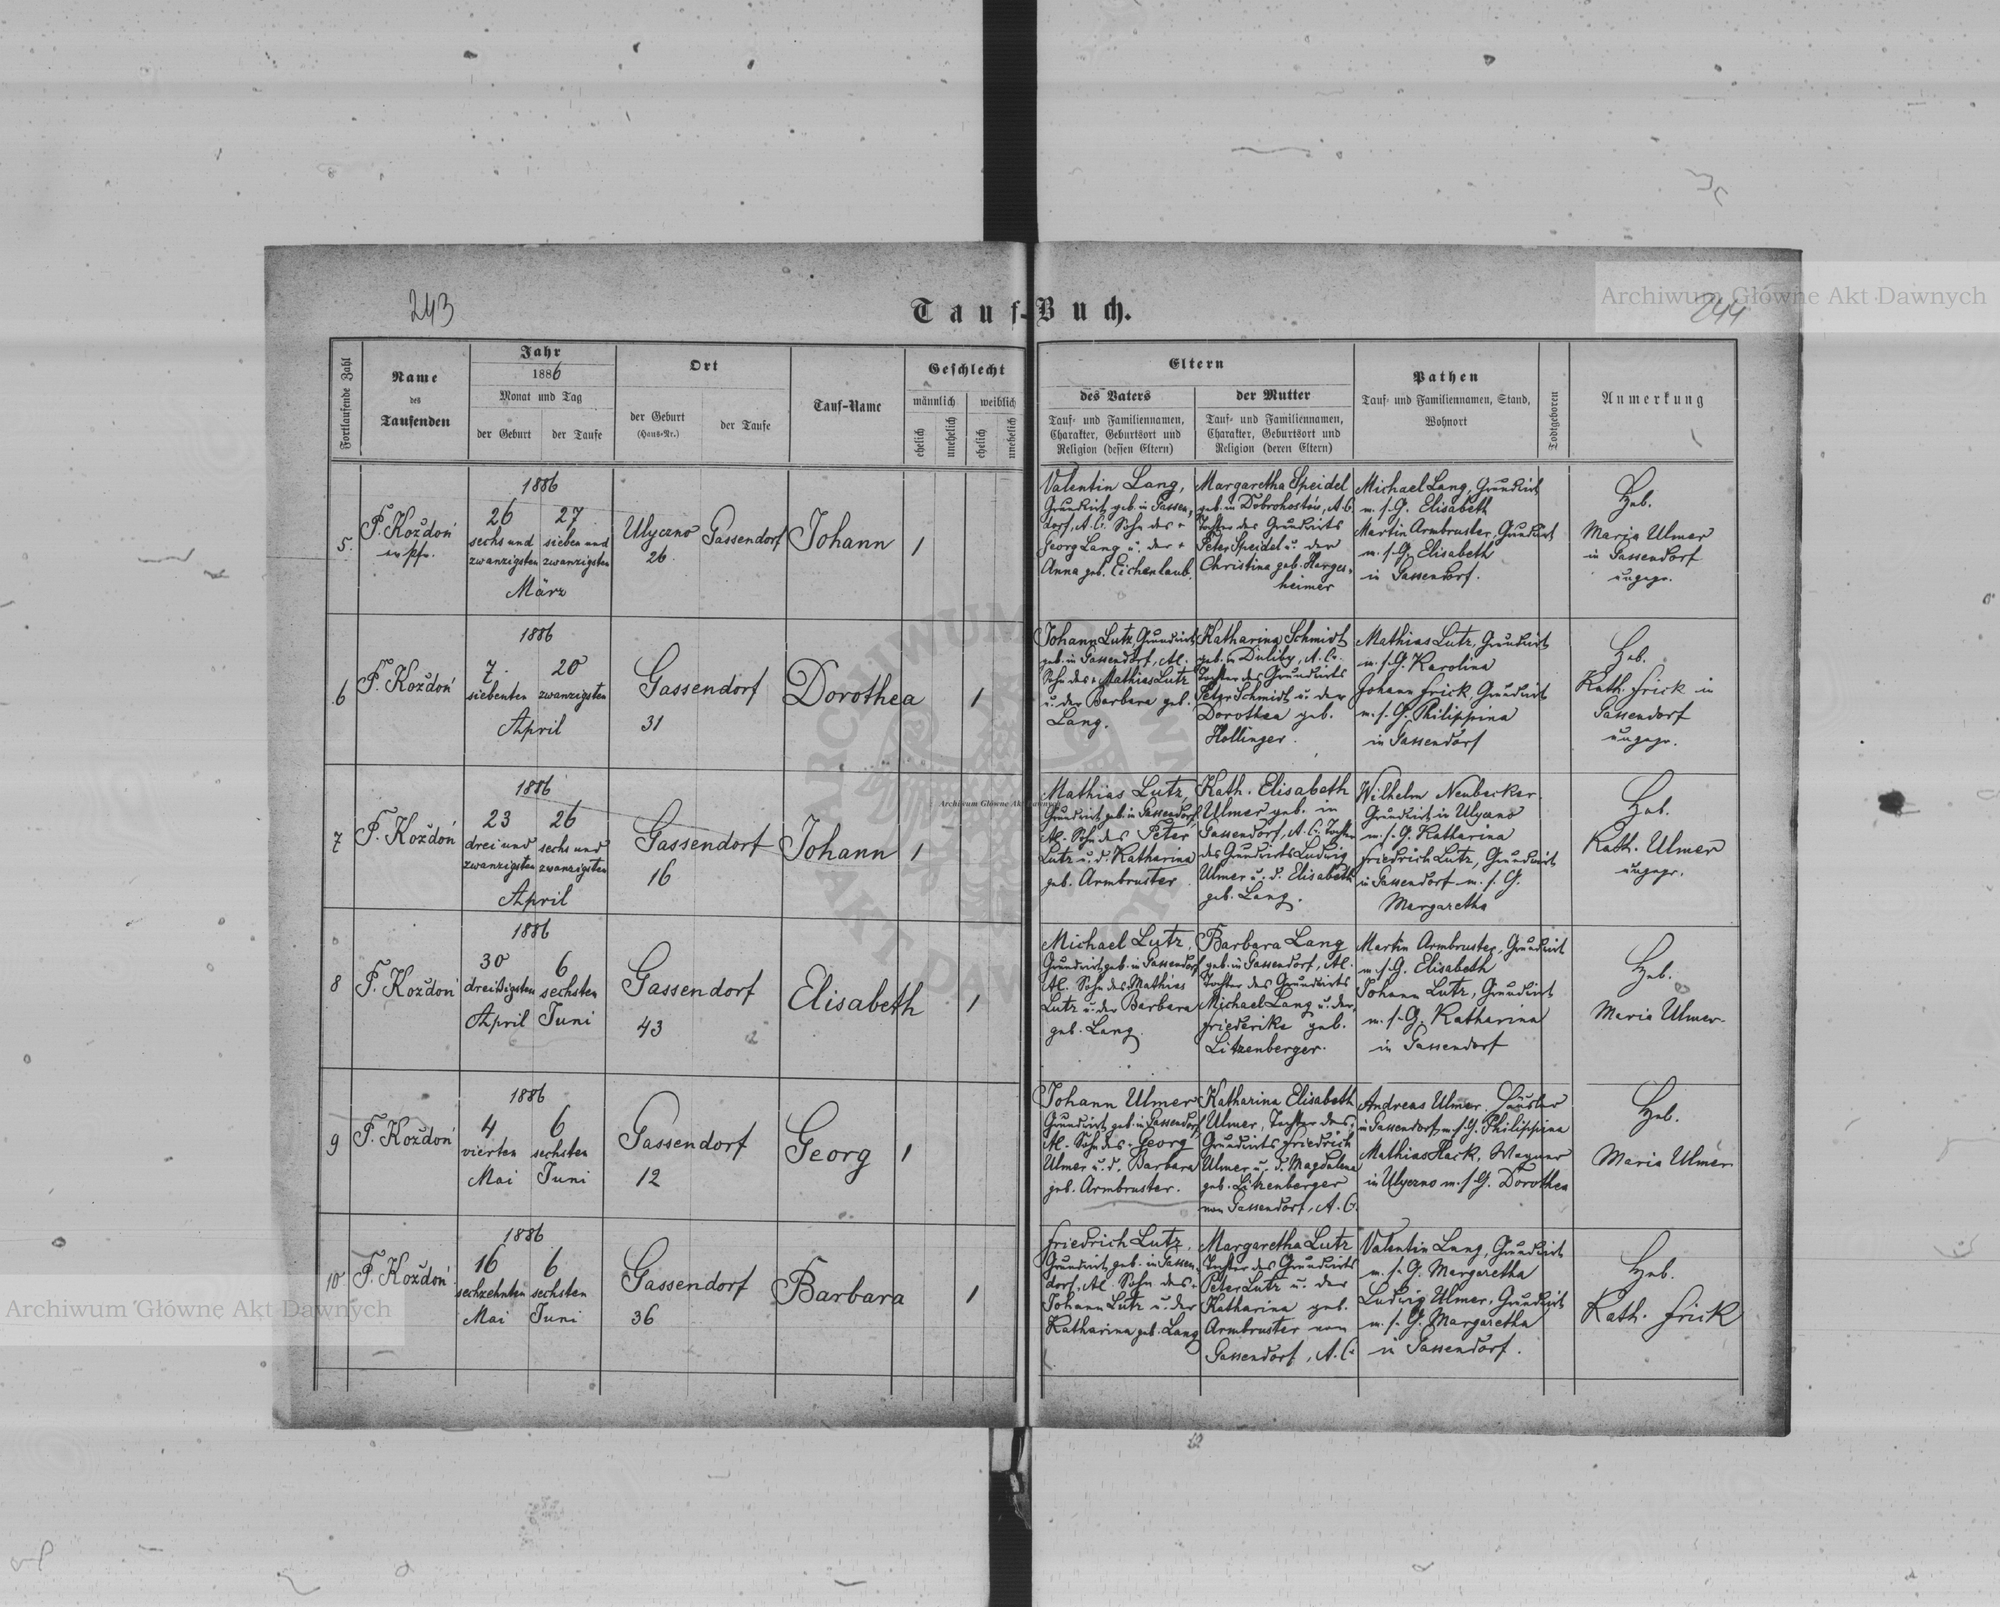 243
244
Tauf-Buch.
Fortlaufende Zahl
Name
des
Taufenden
Jahr
1886
Monat und Tag
der Geburt
der Taufe
Ort
der Geburt
(Haus-Nr.)
der Taufe
Tauf-Name
Geschlecht
männlich
weiblich
ehelich
unehelich
ehelich
unehelich
Eltern
des Vaters
Tauf- und Familiennamen,
Charakter, Geburtsort und
Religion (dessen Eltern)
der Mutter
Tauf- und Familiennamen,
Charakter, Geburtsort und
Religion (deren Eltern)
Pathen
Tauf- und Familiennamen, Stand,
Wohnort
Todtgeboren
Anmerkung
5.
F. Koždoń
ev. pfr.
1886
26
sechs und
zwanzigsten
27
sieben und
zwanzigsten
März
Ulyczno
26
Gassendorf
Johann
1
Valentin Lang,
Grundwirt, geb. in Gassen-
dorf, A.C. Sohn des +
Georg Lang u. der +
Anna geb. Eichenlaub.
Margaretha Speidel
geb. in Dobrohostów, A.C.
Tochter des Grundwirts
Peter Speidel u. der
Christina geb. Harges-
heimer
Michael Lang, Grundwirt
m. s. G. Elisabeth
Martin Armbruster, Grundwirt
m. s. G. Elisabeth
in Gassendorf.
Heb.
Maria Ulmer
in Gassendorf
ungepr.
6
F. Koždoń
1886
7.
siebenten
20
zwanzigsten
April
Gassendorf
31
Dorothea
1
Johann Lutz Grundwirt
geb. in Gassendorf, A.C.
Sohn des + Mathias Lutz
u. der Barbara geb.
Lang.
Katharina Schmidt
geb. in Duliby, A.C.
Tochter des Grundwirts
Peter Schmidt u. der
Dorothea geb.
Hollinger.
Mathias Lutz, Grundwirt
m. s. G. Karolina
Johann Frick Grundwirt
m. s. G. Philippina
in Gassendorf
Heb.
Kath. Frick in
Gassendorf
ungepr.
7
F. Koždoń
1886
23
drei und
zwanzigsten
26
sechs und
zwanzigsten
April
Gassendorf
16
Johann
1
Mathias Lutz,
Grundwirt, geb. in Gassendorf,
A.C. Sohn des Peter
Lutz u. d. Katharina
geb. Armbruster
Kath. Elisabeth
Ulmer geb. in
Gassendorf, A.C. Tochter
des Grundwirts Ludwig
Ulmer u. d. Elisabeth
geb. Lang.
Wilhelm Neubecker
Grundwirt in Ulyczno
m. s. G. Katharina
Friedrich Lutz, Grundwirt
in Gassendorf m. s. G.
Margaretha
Heb.
Kath. Ulmer
ungepr.
8
F. Koždoń
1886
30
dreißigsten
April
6
sechsten
Juni
Gassendorf
43
Elisabeth
1
Michael Lutz,
Grundwirt, geb. in Gassendorf
A.C. Sohn des Mathias
Lutz u. der Barbara
geb. Lang.
Barbara Lang
geb. in Gassendorf, A.C.
Tochter des Grundwirts
Michael Lang u. der
Friederike geb.
Litzenberger.
Martin Armbruster, Grundwirt
m. s. G. Elisabeth
Johann Lutz, Grundwirt
m. s. G. Katharina
in Gassendorf
Heb.
Maria Ulmer
9
F. Koždoń
1886
4
vierten
Mai
6
sechsten
Juni
Gassendorf
12
Georg
1
Johann Ulmer
Grundwirt, geb. in Gassendorf,
A.C. Sohn des Georg
Ulmer u. d. Barbara
geb. Armbruster.
Katharina Elisabeth
Ulmer, Tochter des
Grundwirts Friedrich
Ulmer u. d. Magdalena
geb. Litzenberger
von Gassendorf, A.C.
Andreas Ulmer, Häusler
in Gassendorf, m. s. G. Philippina
Mathias Hack, Wagner
in Ulyczno m. s. G. Dorothea
Heb.
Maria Ulmer
10
F. Koždoń
1886
16
sechzehnten
Mai
6
sechsten
Juni
Gassendorf
36
Barbara
1
Friedrich Lutz,
Grundwirt, geb. in Gassen-
dorf, A.C. Sohn des
Johann Lutz u. der
Katharina geb. Lang
Margaretha Lutz
Tochter des Grundwirts
Peter Lutz u. der
Katharina geb.
Armbruster von
Gassendorf, A.C.
Valentin Lang, Grundwirt
m. s. G. Margaretha
Ludwig Ulmer, Grundwirt
m. s. G. Margaretha
in Gassendorf.
Heb.
Kath. Frick
Archiwum Główne Akt Dawnych
Archiwum Główne Akt Dawnych
Archiwum Główne Akt Dawnych